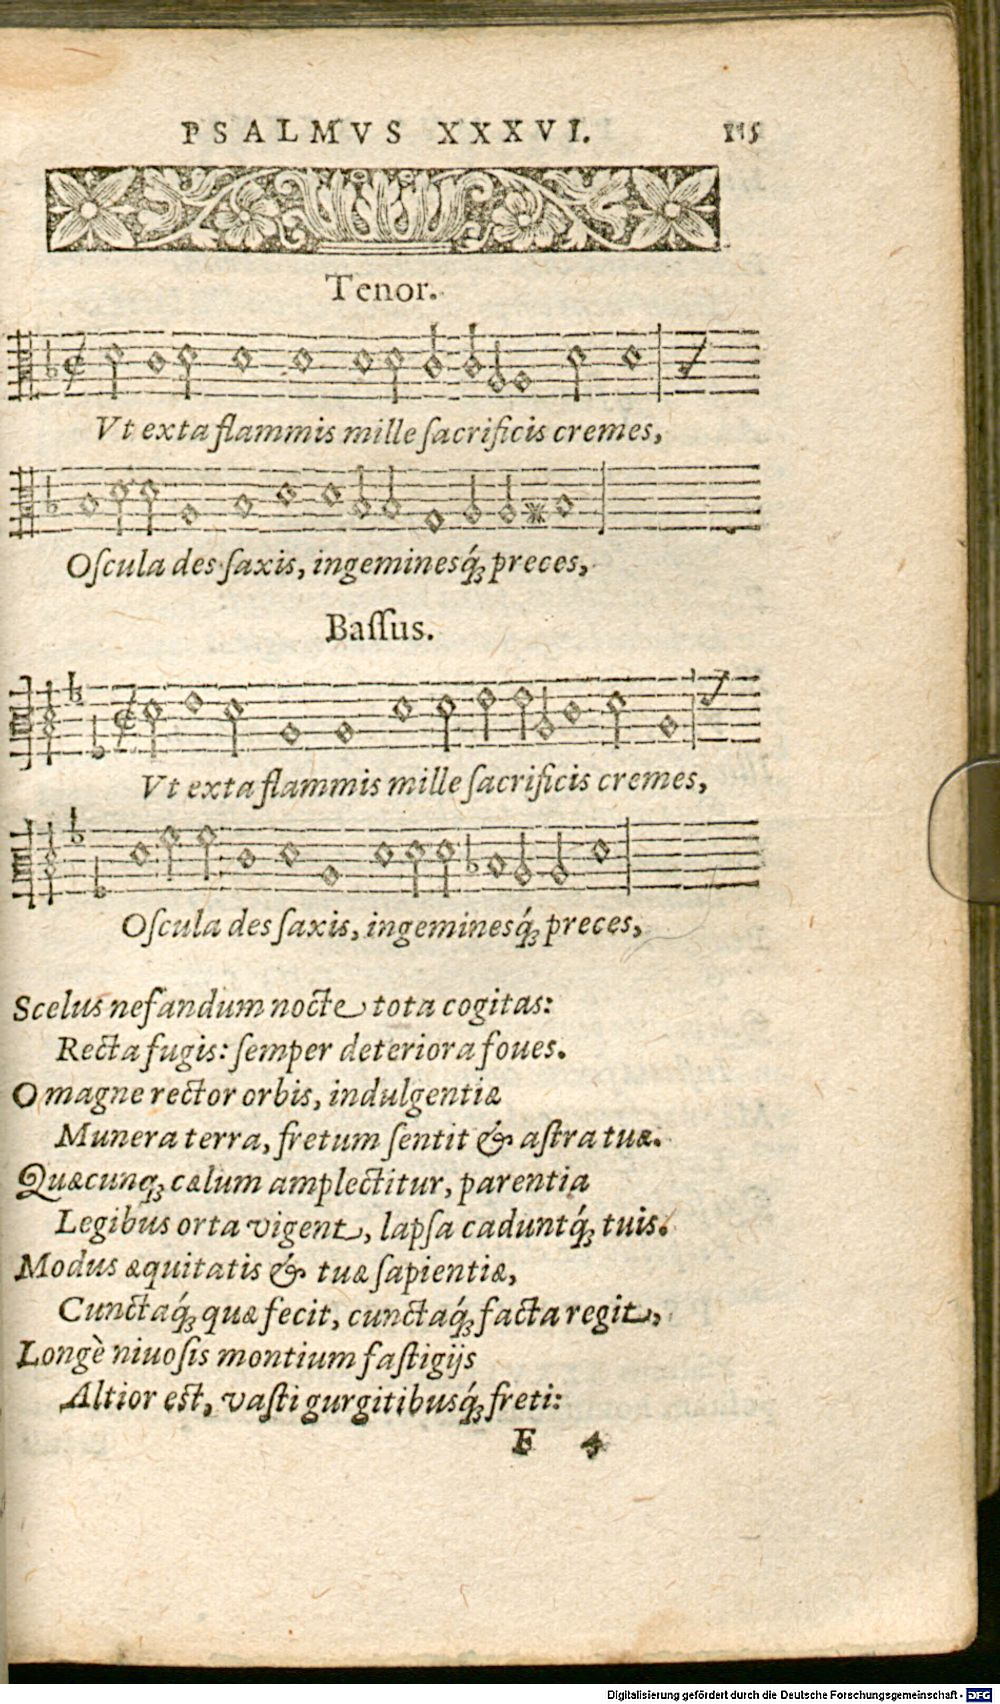 PSALMVS XXXVI. 115
Tenor.
Vt exta flammis mille ſacrificis cremes,
Oſcula des ſaxis, ingeminesq́; preces,
Baſſus.
Vt exta flammis mille ſacrificis cremes,
Oſcula des ſaxis, ingeminesq́; preces,
Scelus nefandum nocte tota cogitas:
Recta fugis: ſemper deteriora foues.
O magne rector orbis, indulgentiæ
Munera terra, fretum ſentit & aſtra tuæ.
Quæcunq; cælum amplectitur, parentia
Legibus orta vigent, lapſa caduntq́; tuis.
Modus æquitatis & tuæ ſapientiæ,
Cunctaq́; quæ fecit, cunctaq́; facta regit,
Longè niuoſis montium faſtigijs
Altior eſt, vaſti gurgitibusq́; freti:
F 4
Digitalisierung gefördert durch die Deutsche Forschungsgemeinschaft - DFG